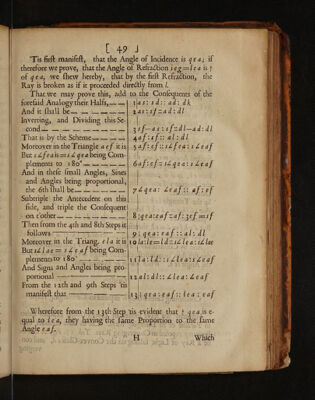 [ 49 ]
'Tis first manifest, that the Angle of Incidence is qea; if
therefore we prove, that the Angle of Refraction ieg=lea is
of qea, we shew hereby, that by the first Refraction, the
Ray is broken as if it proceeded directly from l.
That we may prove this, add to the Consequents of the
foresaid Analogy their Halfs, 1 as: sd:: ad: dk
And it shall be 2 as: sf=ad: dl
Inverting, and Dividing this Second 3 sf—as: sf=dl—ad: dl
That is by the Scheme 4 af: sf:: al: dl
Moreover in the Triangle aef it is 5 af: ef:: s
But
plements to 180° 6 af: ef=
And in these small Angles, Sines
and Angles being proportional,
the 6th shall be 7 ∠qea: ∠eaf:: af: ef
Subtriple the Antecedent on this
side, and triple the Consequent
on t'other 8
Then from the 4th and 8th Steps it
follows 9 qea: eaf:: al: dl
Moreover in the Triang. ela it is 10 la: le=ld::
But being Com-
plements to 180 11 la: ld::
And Signs and Angles being pro-
portional 12 al: dl:: ∠lea: ∠eaf
From the 12th and 9th Steps 'tis
manifest that 13 qea: eaf:: lea: eaf
Wherefore from the 13th Step 'tis evident that qea is e-
qual to lea, they having the same Proportion to the same
Angle eaf.
H Which